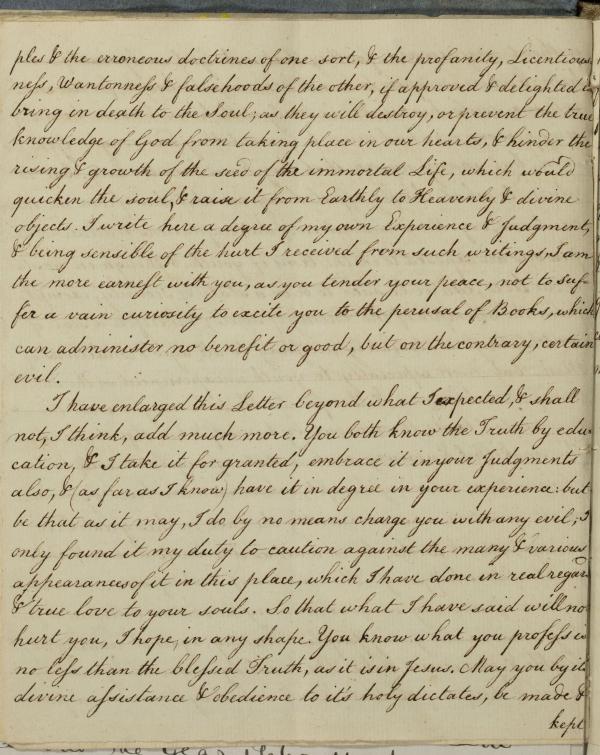 ples & the erroneous doctrines of one sort, & the profanity, Licentious
ness, Wantonness & falsehoods of the other, if approved & delighted in
bring in death to the Soul; as they will destroy, or prevent the true
knowledge of God from taking place in our hearts, & hinder the
rising & growth of the seed of the immortal Life, which would
quicken the soul, & raise it from Earthly to Heavenly & divine
objects. I write here a degree of my own Experience & Judgment,
& being sensible of the hurt I received from such writings, I am
the more earnest with you, as you tender your peace, not to suf-
fer a vain curiosity to excite you to the perusal of Books, which
can administer no benefit or good, but on the contrary, certain
evil.
I have enlarged this Letter beyond what I expected, & shall
not, I think, add much more. You both know the Truth by edu
cation, & I take it for granted, embrace it in your Judgments
also, & (as far as I know) have it in degree in your experience: but
be that as it may, I do by no means charge you with any evil; I
only found it my duty to caution against the many & various
appearances of it in this place, which I have done in real regard
& true love to your souls. So that what I have said will no
hurt you, I hope, in any shape. You know what you profess is
no less than the blessed Truth, as it is in Jesus. May you by its
divine assistance & obedience to it's holy dictates, be made &
kept